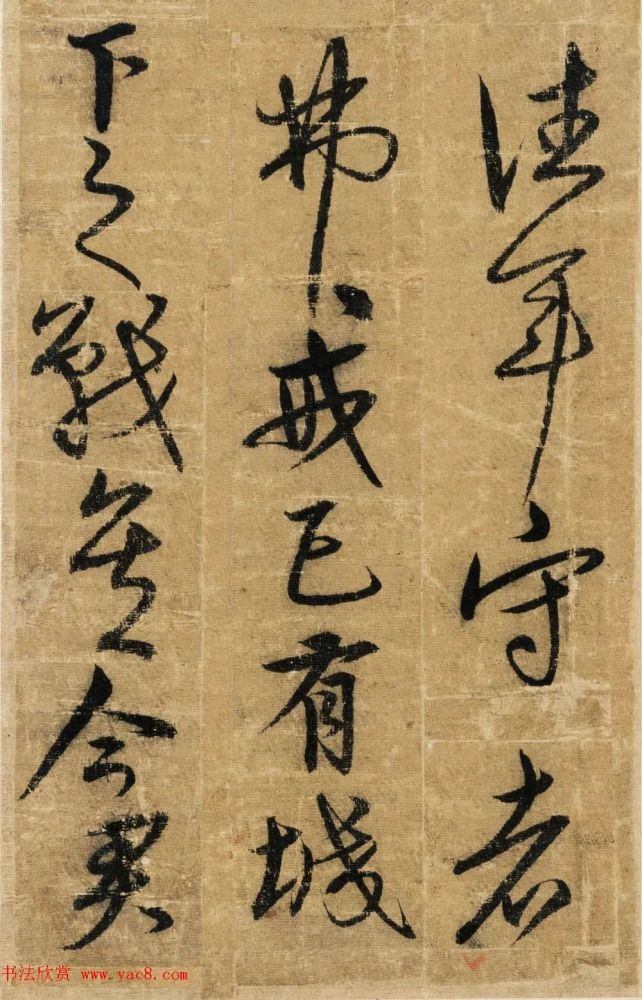 往年守者
弗戒已有城
下之戰矣今
書法欣赏 www.yac8.com